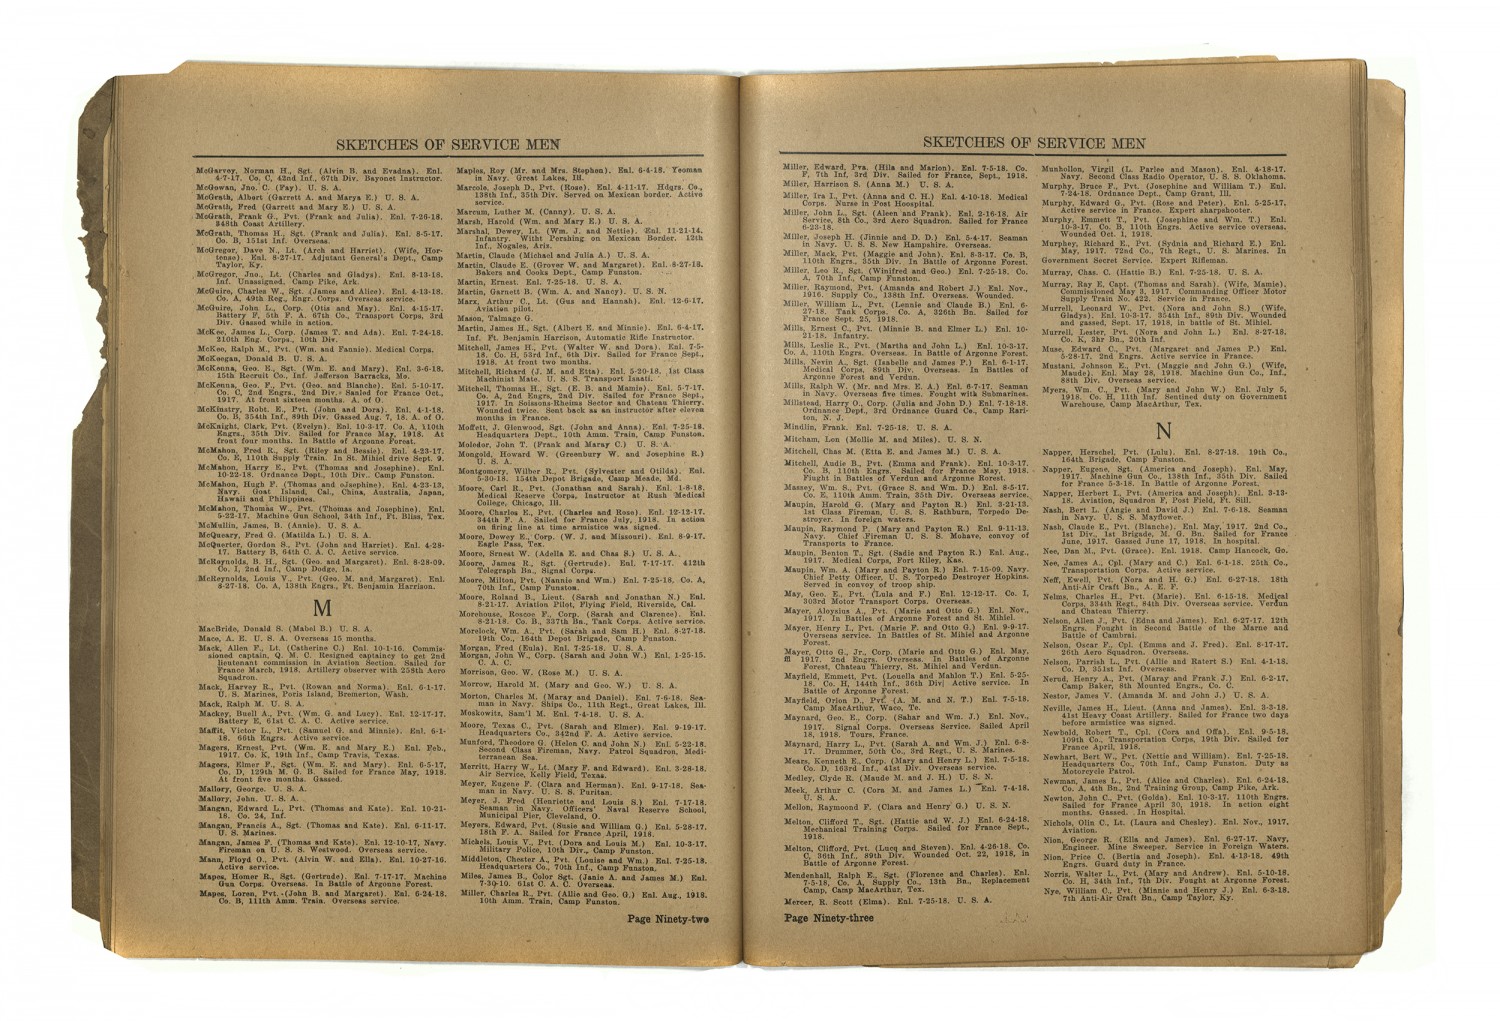 SKETCHES OF SERVICE MEN
McGarvey, Norman H., Sgt. (Alvin B. and Evadna). Enl.
4-7-17. Co. C, 42nd Inf., 67th Div. Bayonet Instructor.
McGowan, Jno. C. (Fay). U. S. A.
McGrath, Albert (Garrett A. and Marya E.) U. S. A.
McGrath, Fred (Garrett and Mary E.) U. S. A.
McGrath, Frank G., Pvt. (Frank and Julia). Enl. 7-26-18.
848th Coast Artillery.
McGrath, Thomas H., Sgt. (Frank and Julia). Enl. 8-5-17.
Co. B, 151st Inf. Overseas.
McGregor, Dave N., Lt. (Arch and Harriet). (Wife, Hor-
tense). Enl. 8-27-17. Adjutant General's Dept., Camp
Taylor, Ky.
McGregor, Jno., Lt. (Charles and Gladys). Enl. 8-13-16.
Inf. Unassigned, Camp Pike, Ark.
McGuire, Charles W., Sgt. (James and Alice). Enl. 4-13-18.
Co. A, 49th Reg., Engr. Corps. Overseas service.
McGuire, John L., Corp. (Otis and May). Enl. 4-15-17.
Battery F, 5th F. A. 67th Co., Transport Corps, 3rd
Div. Gassed while in action.
McKee, James L., Corp. (James T. and Ada). Enl. 7-24-18.
210th Eng. Corps., 10th Div.
McKee, Ralph M., Pvt. (Wm. and Fannie). Medical Corps.
McKeegan, Donald B. U. S. A.
McKenna, Geo. E., Sgt. (Wm. E. and Mary). Enl. 3-6-18.
15th Recruit Co., Inf. Jefferson Barracks, Mo.
McKenna, Geo. F., Pvt. (Geo. and Blanche). Enl. 5-10-17.
Co. C, 2nd Engrs., 2nd Div. Sailed for France Oct.,
1917. At front sixteen months. A. of O.
McKinstry, Robt. E., Pvt. (John and Dora). Enl. 4-1-18.
Co. B, 354th Inf., 89th Div. Gassed Aug. 7, 18. A. of O.
McKnight, Clark, Pvt. (Evelyn). Enl. 10-3-17. Co. A, 110th
Engrs., 35th Div. Sailed for France May, 1918. At
front four months. In Battle of Argonne Forest.
McMahon, Fred R., Sgt. (Riley and Bessie). Enl. 4-23-17.
Co. E, 110th Supply Train. In St. Mihiel drive Sept. 9.
McMahon, Harry E., Pvt. (Thomas and Josephine). Enl.
10-22-18. Ordnance Dept., 10th Div., Camp Funston.
McMahon, Hugh F. (Thomas and Josephine). Enl. 4-23-13,
Navy. Goat Island, Cal., China, Australia, Japan,
Hawaii and Philippines.
McMahon, Thomas W., Pvt. (Thomas and Josephine). Enl.
5-22-17. Machine Gun School, 34th Inf., Ft. Bliss, Tex.
McMullin, James, B. (Annie). U. S. A.
McQueary, Fred G. (Matilda L.) U. S. A.
McQuerter, Gordon S., Pvt. (John and Harriet). Enl. 4-28-
17. Battery B, 64th C. A. C. Active service.
McReynolds, B. H., Sgt. (Geo. and Margaret). Enl. 8-28-09.
Co. I, 2nd Inf., Camp Dodge, Ia.
McReynolds, Louis V., Pvt. (Geo. M. and Margaret). Enl.
8-27-18. Co. A, 138th Engrs., Ft. Benjamin Harrison.
M
MacBride, Donald S. (Mabel B.) U. S. A.
Mace, A. E. U. S. A. Overseas 15 months.
Mack, Allen F., Lt. (Catherine C.) Enl. 10-1-16. Commis-
sioned captain, Q. M. C. Resigned captaincy to get 2nd
lieutenant commission in Aviation Section. Sailed for
France March, 1918. Artillery observer with 258th Aero
Squadron.
Mack, Harvey R., Pvt. (Rowan and Norma). Enl. 6-1-17.
U. S. Marines, Poris Island, Bremerton, Wash.
Mack, Ralph M. U. S. A.
Mackey, Buell A., Pvt. (Wm. G. and Lucy). Enl. 12-17-17.
Battery E, 61st C. A. C. Active service.
Maffit, Victor L., Pvt. (Samuel G. and Minnie). Enl. 6-1-
18. 66th Engrs. Active service.
Magers, Ernest, Pvt. (Wm. E. and Mary E.) Enl. Feb.,
1917. Co. K, 19th Inf., Camp Travis, Tex.
Magers, Elmer F., Sgt. (Wm. E. and Mary). Enl. 6-5-17,
Co. D, 129th M. G. B. Sailed for France May, 1918.
At front five months. Gassed.
Mallory, George. U. S. A.
Mallory, John. U. S. A.
Mangan, Edward L., Pvt. (Thomas and Kate). Enl. 10-21-
18. Co. 24, Inf.
Mangan, Francis A., Sgt. (Thomas and Kate). Enl. 6-11-17.
U. S. Marines.
Mangan, James F. (Thomas and Kate). Enl. 12-10-17, Navy.
Fireman on U. S. S. Westwood. Overseas service.
Mann, Floyd O., Pvt. (Alvin W. and Ella). Enl. 10-27-16.
Active service.
Mapes, Homer R., Sgt. (Gertrude). Enl. 7-17-17. Machine
Gun Corps. Overseas. In Battle of Argonne Forest.
Mapes, Loren, Pvt. (John B. and Margaret). Enl. 6-24-18.
Co. B, 111th Amm. Train. Overseas service.
Maples, Roy (Mr. and Mrs. Stephen). Enl. 6-4-18. Yeoman
in Navy. Great Lakes, Ill.
Marcole, Joseph D., Pvt. (Rose). Enl. 4-11-17. Hdqrs. Co.,
138th Inf., 35th Div. Served on Mexican border. Active
service.
Marcum, Luther M. (Canny). U. S. A.
Marsh, Harold (Wm. and Mary E.) U. S. A.
Marshal, Dewey, Lt. (Wm. J. and Nettie). Enl. 11-21-14,
Infantry. With Pershing on Mexican Border. 12th
Inf., Nogales, Aris.
Martin, Claude (Michael and Julia A.) U. S. A.
Martin, Claude E. (Grover W. and Margaret). Enl. 8-27-18.
Bakers and Cooks Dept., Camp Funston.
Martin, Ernest. Enl. 7-25-18. U. S. A.
Martin, Garnett B. (Wm. A. and Nancy). U. S. N.
Marx, Arthur C., Lt. (Gus and Hannah). Enl. 12-6-17,
Aviation pilot.
Mason, Talmage G.
Martin, James H., Sgt. (Albert E. and Minnie). Enl. 6-4-17.
Inf. Ft. Benjamin Harrison, Automatic Rifle Instructor.
Mitchell, James H., Pvt. (Walter W. and Dora). Enl. 7-5-
18. Co. H, 53rd Inf., 6th Div. Sailed for France Sept.,
1918. At front two months.
Mitchell, Richard (J. M. and Etta). Enl. 5-20-18. 1st Class
Machinist Mate. U. S. S. Transport Issati.
Mitchell, Thomas H., Sgt. (E. B. and Mamie). Enl. 5-7-17.
Co. A, 2nd Engrs, 2nd Div. Sailed for France Sept.,
1917. In Soissons-Rheims Sector and Chateau Thierry.
Wounded twice. Sent back as an instructor after eleven
months in France.
Moffett, J. Glenwood, Sgt. (John and Anna). Enl. 7-25-18.
Headquarters Dept., 10th Amm. Train, Camp Funston.
Moledor, John T. (Frank and Maray C.) U. S. A.
Mongold, Howard W. (Greenbury W. and Josephine R.)
U. S. A.
Montgomery, Wilber R., Pvt. (Sylvester and Otilda). Enl.
5-30-18. 154th Depot Brigade, Camp Meade, Md.
Moore, Carl R., Pvt. (Jonathan and Sarah). Enl. 1-8-18.
Medical Reserve Corps, Instructor at Rush Medical
College, Chicago, Ill.
Moore, Charles E., Pvt. (Charles and Rose). Enl. 12-12-17.
344th F. A. Sailed for France July, 1918. In action
on firing line at time armistice was signed.
Moore, Dowey E., Corp. (W. J. and Missouri). Enl. 8-9-17.
Eagle Pass, Tex.
Moore, Ernest W. (Adella E. and Chas S.) U. S. A.
Moore, James R., Sgt. (Gertrude). Enl. 7-17-17. 412th
Telegraph Bn., Signal Corps.
Moore, Milton, Pvt. (Nannie and Wm.) Enl. 7-25-18, Co. A,
70th Inf., Camp Funston.
Moore, Roland B., Lieut. (Sarah and Jonathan N.) Enl.
8-21-17. Aviation Pilot, Flying Field, Riverside, Cal.
Morehouse, Roscoe F., Corp. (Sarah and Clarence). Enl.
8-21-18. Co. B, 337th Bn., Tank Corps. Active service.
Morelock, Wm. A., Pvt. (Sarah and Sam H.) Enl. 8-27-18.
19th Co., 164th Depot Brigade, Camp Funston.
Morgan, Fred (Eula). Enl. 7-25-18. U. S. A.
Morgan, John W., Corp. (Sarah and John W.) Enl. 1-25-15.
C. A. C.
Morrison, Geo. W. (Rose M.) U. S. A.
Morrow, Harold M. (Mary and Geo. W.) U. S. A.
Morton, Charles M. (Maray and Daniel). Enl. 7-6-18. Sea-
man in Navy. Ships Co., 11th Regt., Great Lakes, Ill.
Moskowitz, Sam'l M. Enl. 7-4-18. U. S. A.
Moore, Texas C., Pvt. (Sarah and Elmer). Enl. 9-19-17.
Headquarters Co., 342nd F. A. Active service.
Munford, Theodore G. (Helen C. and John N.) Enl. 5-22-18.
Second Class Fireman, Navy. Patrol Squadron, Medi-
terranean Sea.
Merritt, Harry W., Lt. (Mary F. and Edward). Enl. 3-28-18.
Air Service, Kelly Field, Texas.
Meyer, Eugene F. (Clara and Herman). Enl. 9-17-18. Sea-
man in Navy. U. S. S. Puritan.
Meyer, J. Fred (Henriette and Louis S.) Enl. 7-17-18.
Seaman in Navy. Officers' Naval Reserve School,
Municipal Pier, Cleveland, O.
Meyers, Edward, Pvt. (Susie and William G.) Enl. 5-28-17,
18th F. A. Sailed for France April, 1918.
Michels, Louis V., Pvt. (Dora and Louis M.) Enl. 10-3-17.
Military Police, 10th Div., Camp Funston.
Middleton, Chester A., Pvt. (Louise and Wm.) Enl. 7-25-18.
Headquarters Co., 70th Inf., Camp Funston.
Miles, James B., Color Sgt. (Janie A. and James M.) Enl.
7-30-10. 61st C. A. C. Overseas.
Miller, Charles R., Pvt. (Allie and Geo. G.) Enl. Aug., 1918.
10th Amm. Train, Camp Funston.
Page Ninety-two
SKETCHES OF SERVICE MEN
Miller, Edward, Pva. (Hila and Marion). Enl. 7-5-18. Co.
F, 7th Inf, 3rd Div. Sailed for France, Sept., 1918.
Miller, Harrison S. (Anna M.) U. S. A.
Miller, Ira I., Pvt. (Anna and C. H.) Enl. 4-10-18. Medical
Corps. Nurse in Post Hoospital.
Miller, John L., Sgt. (Aleen and Frank). Enl. 2-16-18. Air
Service, 8th Co., 3rd Aero Squadron. Sailed for France
6-23-18.
Miller, Joseph H. (Jinnie and D. D.) Enl. 5-4-17. Seaman
in Navy. U. S. S. New Hampshire. Overseas.
Miller, Mack, Pvt. (Maggie and John). Enl. 8-3-17. Co. B,
110th Engrs., 35th Div. In Battle of Argonne Forest.
Miller, Leo R., Sgt. (Winifred and Geo.) Enl. 7-25-18. Co.
A, 70th Inf., Camp Funston.
Miller, Raymond, Pvt. (Amanda and Robert J.) Enl. Nov.,
1916. Supply Co., 138th Inf. Overseas. Wounded.
Miller, William L., Pvt. (Lennie and Claude B.) Enl. 6-
27-18. Tank Corps. Co. A, 326th Bn. Sailed for
France Sept. 25, 1918.
Mills, Ernest C., Pvt. (Minnie B. and Elmer L.) Enl. 10-
21-18. Infantry.
Mills, Leslie R., Pvt. (Martha and John L.) Enl. 10-3-17.
Co. A, 110th Engrs. Overseas. In Battle of Argonne Forest.
Mills, Nevin A., Sgt. (Isabelle and James P.) Enl. 6-1-17.
Medical Corps, 89th Div. Overseas. In Battles of
Argonne Forest and Verdun.
Mills, Ralph W. (Mr. and Mrs. E. A.) Enl. 6-7-17. Seaman
in Navy. Overseas five times. Fought with Submarines.
Millstead, Harry O., Corp. (Julia and John D.) Enl. 7-18-18.
Ordnance Dept., 3rd Ordnance Guard Co., Camp Rari-
ton, N. J.
Mindlin, Frank. Enl. 7-25-18. U. S. A.
Mitcham, Lon (Mollie M. and Miles). U. S. N.
Mitchell, Chas M. (Etta E. and James M.) U. S. A.
Mitchell, Audie B., Pvt. (Emma and Frank). Enl. 10-3-17.
Co. B, 110th Engrs. Sailed for France May, 1918.
Fiught in Battles of Verdun and Argonne Forest.
Massey, Wm. S., Pvt. (Grace S. and Wm. D.) Enl. 8-5-17.
Co. E, 110th Amm. Train, 35th Div. Overseas service.
Maupin, Harold G. (Mary and Payton R.) Enl. 3-21-13.
1st Class Fireman, U. S. S. Rathburn, Torpedo De-
stroyer. In foreign waters.
Maupin, Raymond P. (Mary and Payton R.) Enl. 9-11-13,
Navy. Chief Fireman U. S. S. Mohave, convoy of
Transports to France.
Maupin, Benton T., Sgt. (Sadie and Payton R.) Enl. Aug.,
1917. Medical Corps, Fort Riley, Kas.
Maupin, Wm. A. (Mary and Payton R.) Enl. 7-15-09. Navy.
Chief Petty Officer, U. S. Torpedo Destroyer Hopkins.
Served in convoy of troop ship.
May, Geo. E., Pvt. (Lula and F.) Enl. 12-12-17. Co. I,
303rd Motor Transport Corps. Overseas.
Mayer, Aloysius A., Pvt. (Marie and Otto G.) Enl. Nov.,
1917. In Battles of Argonne Forest and St. Mihiel.
Mayer, Henry I., Pvt. (Marie F. and Otto G.) Enl. 9-9-17.
Overseas service. In Battles of St. Mihiel and Argonne
Forest.
Mayer, Otto G., Jr., Corp. (Marie and Otto G.) Enl. May,
1917. 2nd Engrs. Overseas. In Battles of Argonne
Forest, Chateau Thierry, St. Mihiel and Verdun.
Mayfield, Emmett, Pvt. (Louella and Mahlon T.) Enl. 5-25-
18. Co. H, 144th Inf., 36th Div. Active service. In
Battle of Argonne Forest.
Mayfield, Orion D., Pvt. (A. M. and N. T.) Enl. 7-5-18.
Camp MacArthur, Waco, Te.
Maynard, Geo. E., Corp. (Sahar and Wm. J.) Enl. Nov.,
1917. Signal Corps. Overseas Service. Sailed April
18, 1918. Tours, France.
Maynard, Harry L., Pvt. (Sarah A. and Wm. J.) Enl. 6-8-
17. Drummer, 50th Co., 3rd Regt., U. S. Marines.
Mears, Kenneth E., Corp. (Mary and Henry L.) Enl. 7-5-18.
Co. D, 163rd Inf., 41st Div. Overseas service.
Medley, Clyde R. (Maude M. and J. H.) U. S. N.
Meek, Arthur C. (Cora M. and James L.) Enl. 7-4-18.
U. S. A.
Mellon, Raymoond F. (Clara and Henry G.) U. S. N.
Melton, Clifford T., Sgt. (Hattie and W. J.) Enl. 6-24-18.
Mechanical Training Corps. Sailed for France Sept.,
1918.
Melton, Clifford, Pvt. (Lucq and Steven). Enl. 4-26-18. Co.
C, 36th Inf., 89th Div. Wounded Oct. 22, 1918, in
Battle of Argonne Forest.
Mendenhall, Ralph E., Sgt. (Florence and Charles). Enl.
7-5-18. Co. A, Supply Co., 13th Bn., Replacement
Camp, Camp MacArthur, Tex.
Mercer, R. Scott (Elma). Enl. 7-25-18. U. S. A.
Munhollon, Virgil (L. Parlee and Mason). Enl. 4-18-17.
Navy. Second Class Radio Operator, U. S. S. Oklahoma.
Murphy, Bruce F., Pvt. (Josephine and William T.) Enl.
7-24-18. Ordnance Dept., Camp Grant, Ill.
Murphy, Edward G., Pvt. (Rose and Peter). Enl. 5-25-17.
Active service in France. Expert sharpshooter.
Murphy, Emmett T., Pvt. (Josephine and Wm. T.) Enl.
10-3-17. Co. B, 110th Engrs. Active service overseas.
Wounded Oct. 1, 1918.
Murphey, Richard E., Pvt. (Sydnia and Richard E.) Enl.
May, 1917. 72nd Co., 7th Regt., U. S. Marines. In
Government Secret Service. Expert Rifleman.
Murray, Chas. C. (Hattie B.) Enl. 7-25-18. U. S. A.
Murray, Ray E, Capt. (Thomas and Sarah). (Wife, Mamie),
Commissioned May 3, 1917. Commanding Officer Motor
Supply Train No. 422. Service in France.
Murrell, Leonard W., Pvt. (Nora and John S.) (Wife,
Gladys). Enl. 10-3-17. 354th Inf., 89th Div. Wounded
and gassed, Sept. 17, 1918, in battle of St. Mihiel.
Murrell, Lester, Pvt. (Nora and John L.) Enl. 8-27-18.
Co. K, 3hr Bn., 20th Inf.
Muse, Edward C., Pvt. (Margaret and James P.) Enl.
5-28-17. 2nd Engrs. Active service in France.
Mustani, Johnson E., Pvt. (Maggie and John G.) (Wife,
Maude). Enl. May 28, 1918. Machine Gun Co., Inf.,
88th Div. Overseas service.
Myers, Wm. C., Pvt. (Mary and John W.) Enl. July 5,
1918. Co. H, 11th Inf. Sentinel duty on Government
Warehouse, Camp MacArthur, Tex.
N
Napper, Herschel, Pvt. (Lulu). Enl. 8-27-18. 19th Co.,
164th Brigade, Camp Funston.
Napper, Eugene, Sgt. (America and Joseph). Enl. May,
1917. Machine Gun Co., 138th Inf., 35th Div. Sailed
for France 5-3-18. In Battle of Argonne Forest.
Napper, Herbert I., Pvt. (America and Joseph). Enl. 3-13-
18. Aviation, Squadron F, Post Field, Ft. Sill.
Nash, Bert L. (Angie and David J.) Enl. 7-6-18. Seaman
in Navy. U. S. S. Mayflower.
Nash, Claude E., Pvt. (Blanche). Enl. May, 1917. 2nd Co.,
1st Div., 1st Brigade, M. G. Bn. Sailed for France
June, 1917. Gassed June 17, 1918. In hospital.
Nee, Dan M., Pvt. (Grace). Enl. 1918. Camp Hancock, Go.
Nee, James A., Cpl. (Mary and C.) Enl. 6-1-18. 25th Co.,
Transportation Corps. Active service.
Neff, Ewell, Pvt. (Nora and H. G.) Enl. 6-27-18. 18th
Anti-Air Craft Bn., A. E. F.
Nelms, Charles H., Pvt. (Marie). Enl. 6-15-18. Medical
Corps, 334th Regt., 84th Div. Overseas service. Verdun
and Chateau Thierry.
Nelson, Allen J., Pvt. (Edna and James). Enl. 6-27-17. 12th
Engrs. Fought in Second Battle of the Marne and
Battle of Cambrai.
Nelson, Oscar F., Cpl. (Emma and J. Fred). Enl. 8-17-17,
26th Aero Squadron. Overseas.
Nelson, Parrish L., Pvt. (Allie and Ratert S.) Enl. 4-1-18.
Co. D, 351st Inf. Overseas.
Nerud, Henry A., Pvt. (Maray and Frank J.) Enl. 6-2-17,
Camp Baker, 8th Mounted Engrs., Co. C.
Nestor, James V. (Amanda M. and John J.) U. S. A.
Neville, James H., Lieut. (Anna and James). Enl. 3-3-18.
41st Heavy Coast Artillery. Sailed for France two days
before armistice was signed.
Newbold, Robert T., Cpl. (Cora and Offa). Enl. 9-5-18,
109th Co., Transportation Corps, 19th Div. Sailed for
France April, 1918.
Newhart, Bert W., Pvt. (Nettie and William). Enl. 7-25-18.
Headquarters Co., 70th Inf., Camp Funston. Duty as
Motorcycle Patrol.
Newman, James L., Pvt. (Alice and Charles). Enl. 6-24-18.
Co. A, 4th Bn., 2nd Training Group, Camp Pike, Ark.
Newton, John C., Pvt. (Golda). Enl. 10-3-17. 110th Engrs.
Sailed for France April 30, 1918. In action eight
months. Gassed. In Hospital.
Nichols, Olin C., Lt. (Laura and Chesley). Enl. Nov., 1917,
Aviation.
Nion, George R. (Ella and James). Enl. 6-27-17. Navy,
Engineer. Mine Sweeper. Service in Foreign Waters.
Nion, Price C. (Bertia and Joseph). Enl. 4-13-18. 49th
Engrs. Guard duty in France.
Norris, Walter L., Pvt. (Mary and Andrew). Enl. 5-10-18.
Co. H, 34th Inf., 7th Div. Fought at Argonne Forest.
Nye, William C., Pvt. (Minnie and Henry J.) Enl. 6-3-18.
7th Anti-Air Craft Bn., Camp Taylor, Ky.
Page Ninety-three